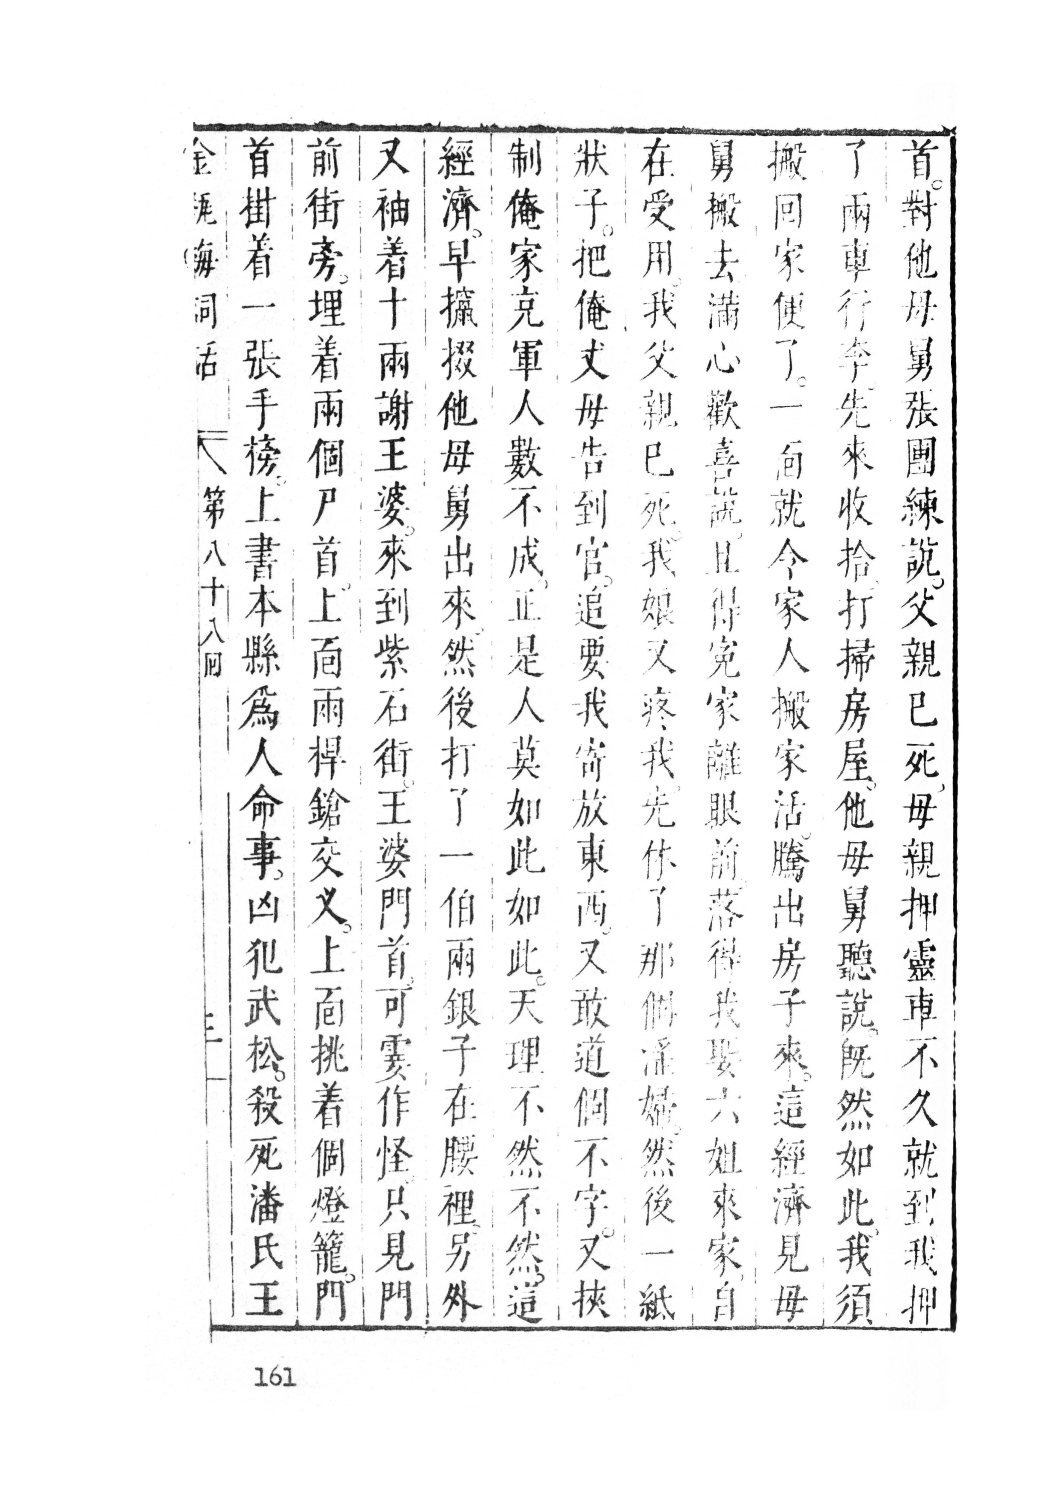 首。對他母舅張團練說。父親已死。母親押靈車不久就到我押
了兩車行李先來收拾。打掃房屋。他母舅聽說。旣然如此。我須
搬回家便了。一面就令家人搬家活。騰出房子來。這經濟見母
舅搬去滿心歡喜說。且得寃家離眼前。落得我娶六姐來家。自
在受用。我父親已死。我娘又疼我。先休了那個淫婦。然後一紙
狀子。把俺丈母告到官。追要我寄放東西。又敢道個不字。又挾
制俺家充軍人數不成。正是人莫如此如此。天理不然不然。這
經濟。早攛掇他母舅出來。然後打了一伯兩銀子在腰裡。另外
又袖着十兩謝王婆。來到紫石街。王婆門首。可霎作怪。只見門
前街旁。埋着兩個尸首。上面兩桿鎗交叉。上面挑着個燈籠。門
首掛着一張手榜。上書本縣爲人命事。凶犯武松。殺死潘氏王
金瓶梅詞話 第八十八回 三
161